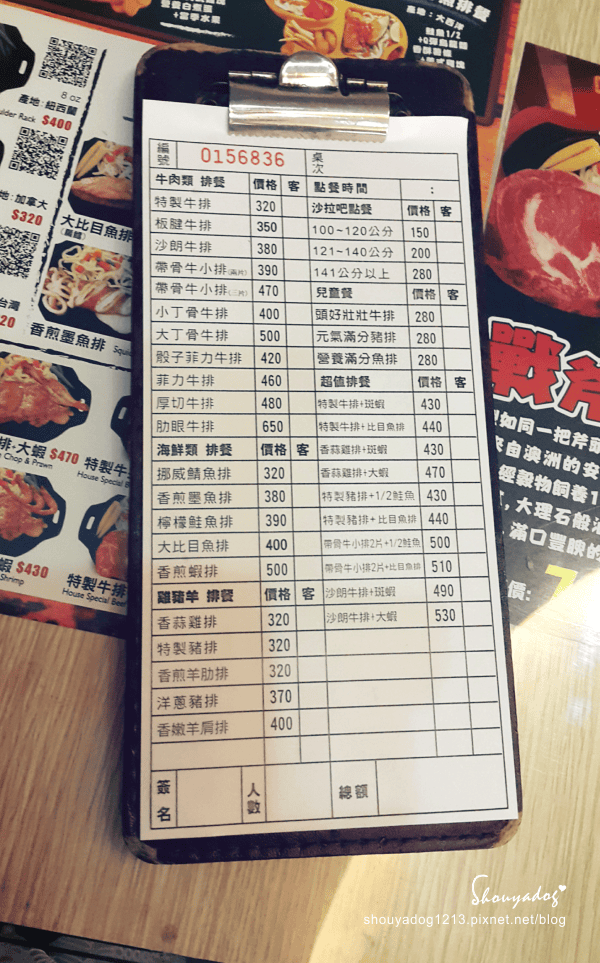 編號 0156836 桌次
牛肉類 排餐 價格 客
特製牛排 320
板腱牛排 350
沙朗牛排 380
帶骨牛小排(兩片) 390
帶骨牛小排(三片) 470
小丁骨牛排 400
大丁骨牛排 500
骰子菲力牛排 420
菲力牛排 460
厚切牛排 480
肋眼牛排 650
海鮮類 排餐 價格 客
挪威鯖魚排 320
香煎墨魚排 380
檸檬鮭魚排 390
大比目魚排 400
香煎蝦排 500
雞豬羊 排餐 價格 客
香蒜雞排 320
特製豬排 320
香煎羊肋排 320
洋蔥豬排 370
香嫩羊肩排 400
點餐時間 :
沙拉吧點餐 價格 客
100~120公分 150
121~140公分 200
141公分以上 280
兒童餐 價格 客
頭好壯壯牛排 280
元氣滿分豬排 280
營養滿分魚排 280
超值排餐 價格 客
特製牛排+斑蝦 430
特製牛排+比目魚排 440
香蒜雞排+斑蝦 430
香蒜雞排+大蝦 470
特製豬排+1/2鮭魚 430
特製豬排+比目魚排 440
帶骨牛小排2片+1/2鮭魚 500
帶骨牛小排2片+比目魚排 510
沙朗牛排+斑蝦 490
沙朗牛排+大蝦 530
簽名 人數 總額
8 oz
產地: 紐西蘭
ulder Rack $400
地: 加拿大
$320
台灣
20
大比目魚排
香煎墨魚排 Squid
排·大蝦 $470
Chop & Prawn
特製牛
House Special Bee
蝦 $430
Shrimp
特製牛排
House Special Beef
產地: 大西洋
鮭魚1/2
+當季水果
戰斧
如同一把斧頭
來自澳洲的安
經穀物飼養1
大理石般油
滿口豐腴的
價: 7
Shouyadog
shouyadog1213.pixnet.net/blog